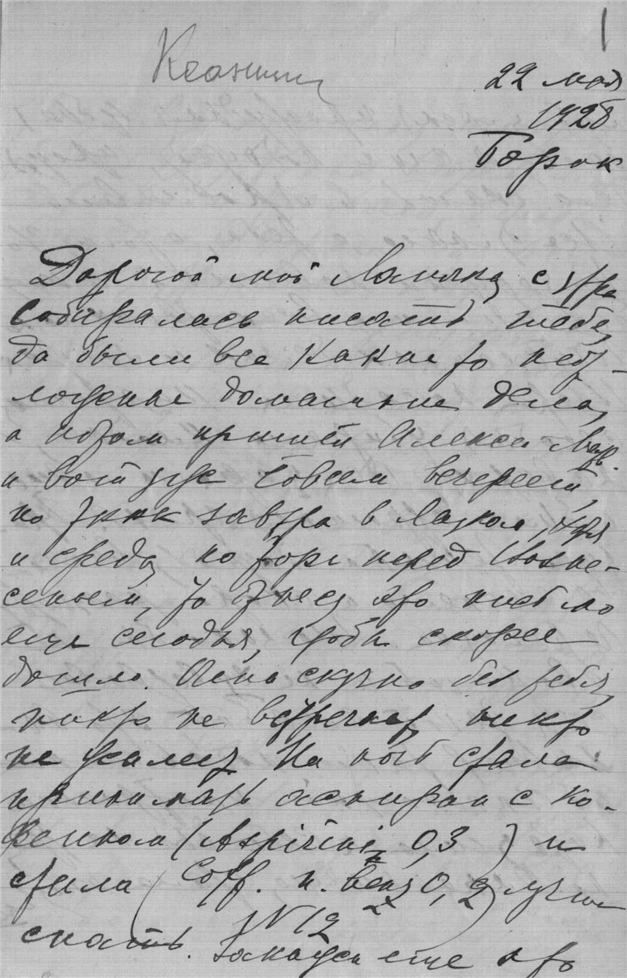 1
22 мая
1928
Борок
Дорогой мой Лапочка, с утра
собиралась писать тебе,
да были все какие то неот-
ложные домашние дела,
а потом пришел Алекса Мар.
и вот уже совсем вечереет,
но так как завтра в хотя
и среда, но торг перед Вознe-
сеньем, то отнесу это письмо
еще сегодня, чтобы скорее
дошло. Очень скучно без тебя,
никто не встречает, никто
не жалеет. На ночь стала
принимать аспирин с ко-
феином (Aspirini 0,3) и
стала (Coff. n. benz 0,2) лучше
N 12
спать. Закажу еще это